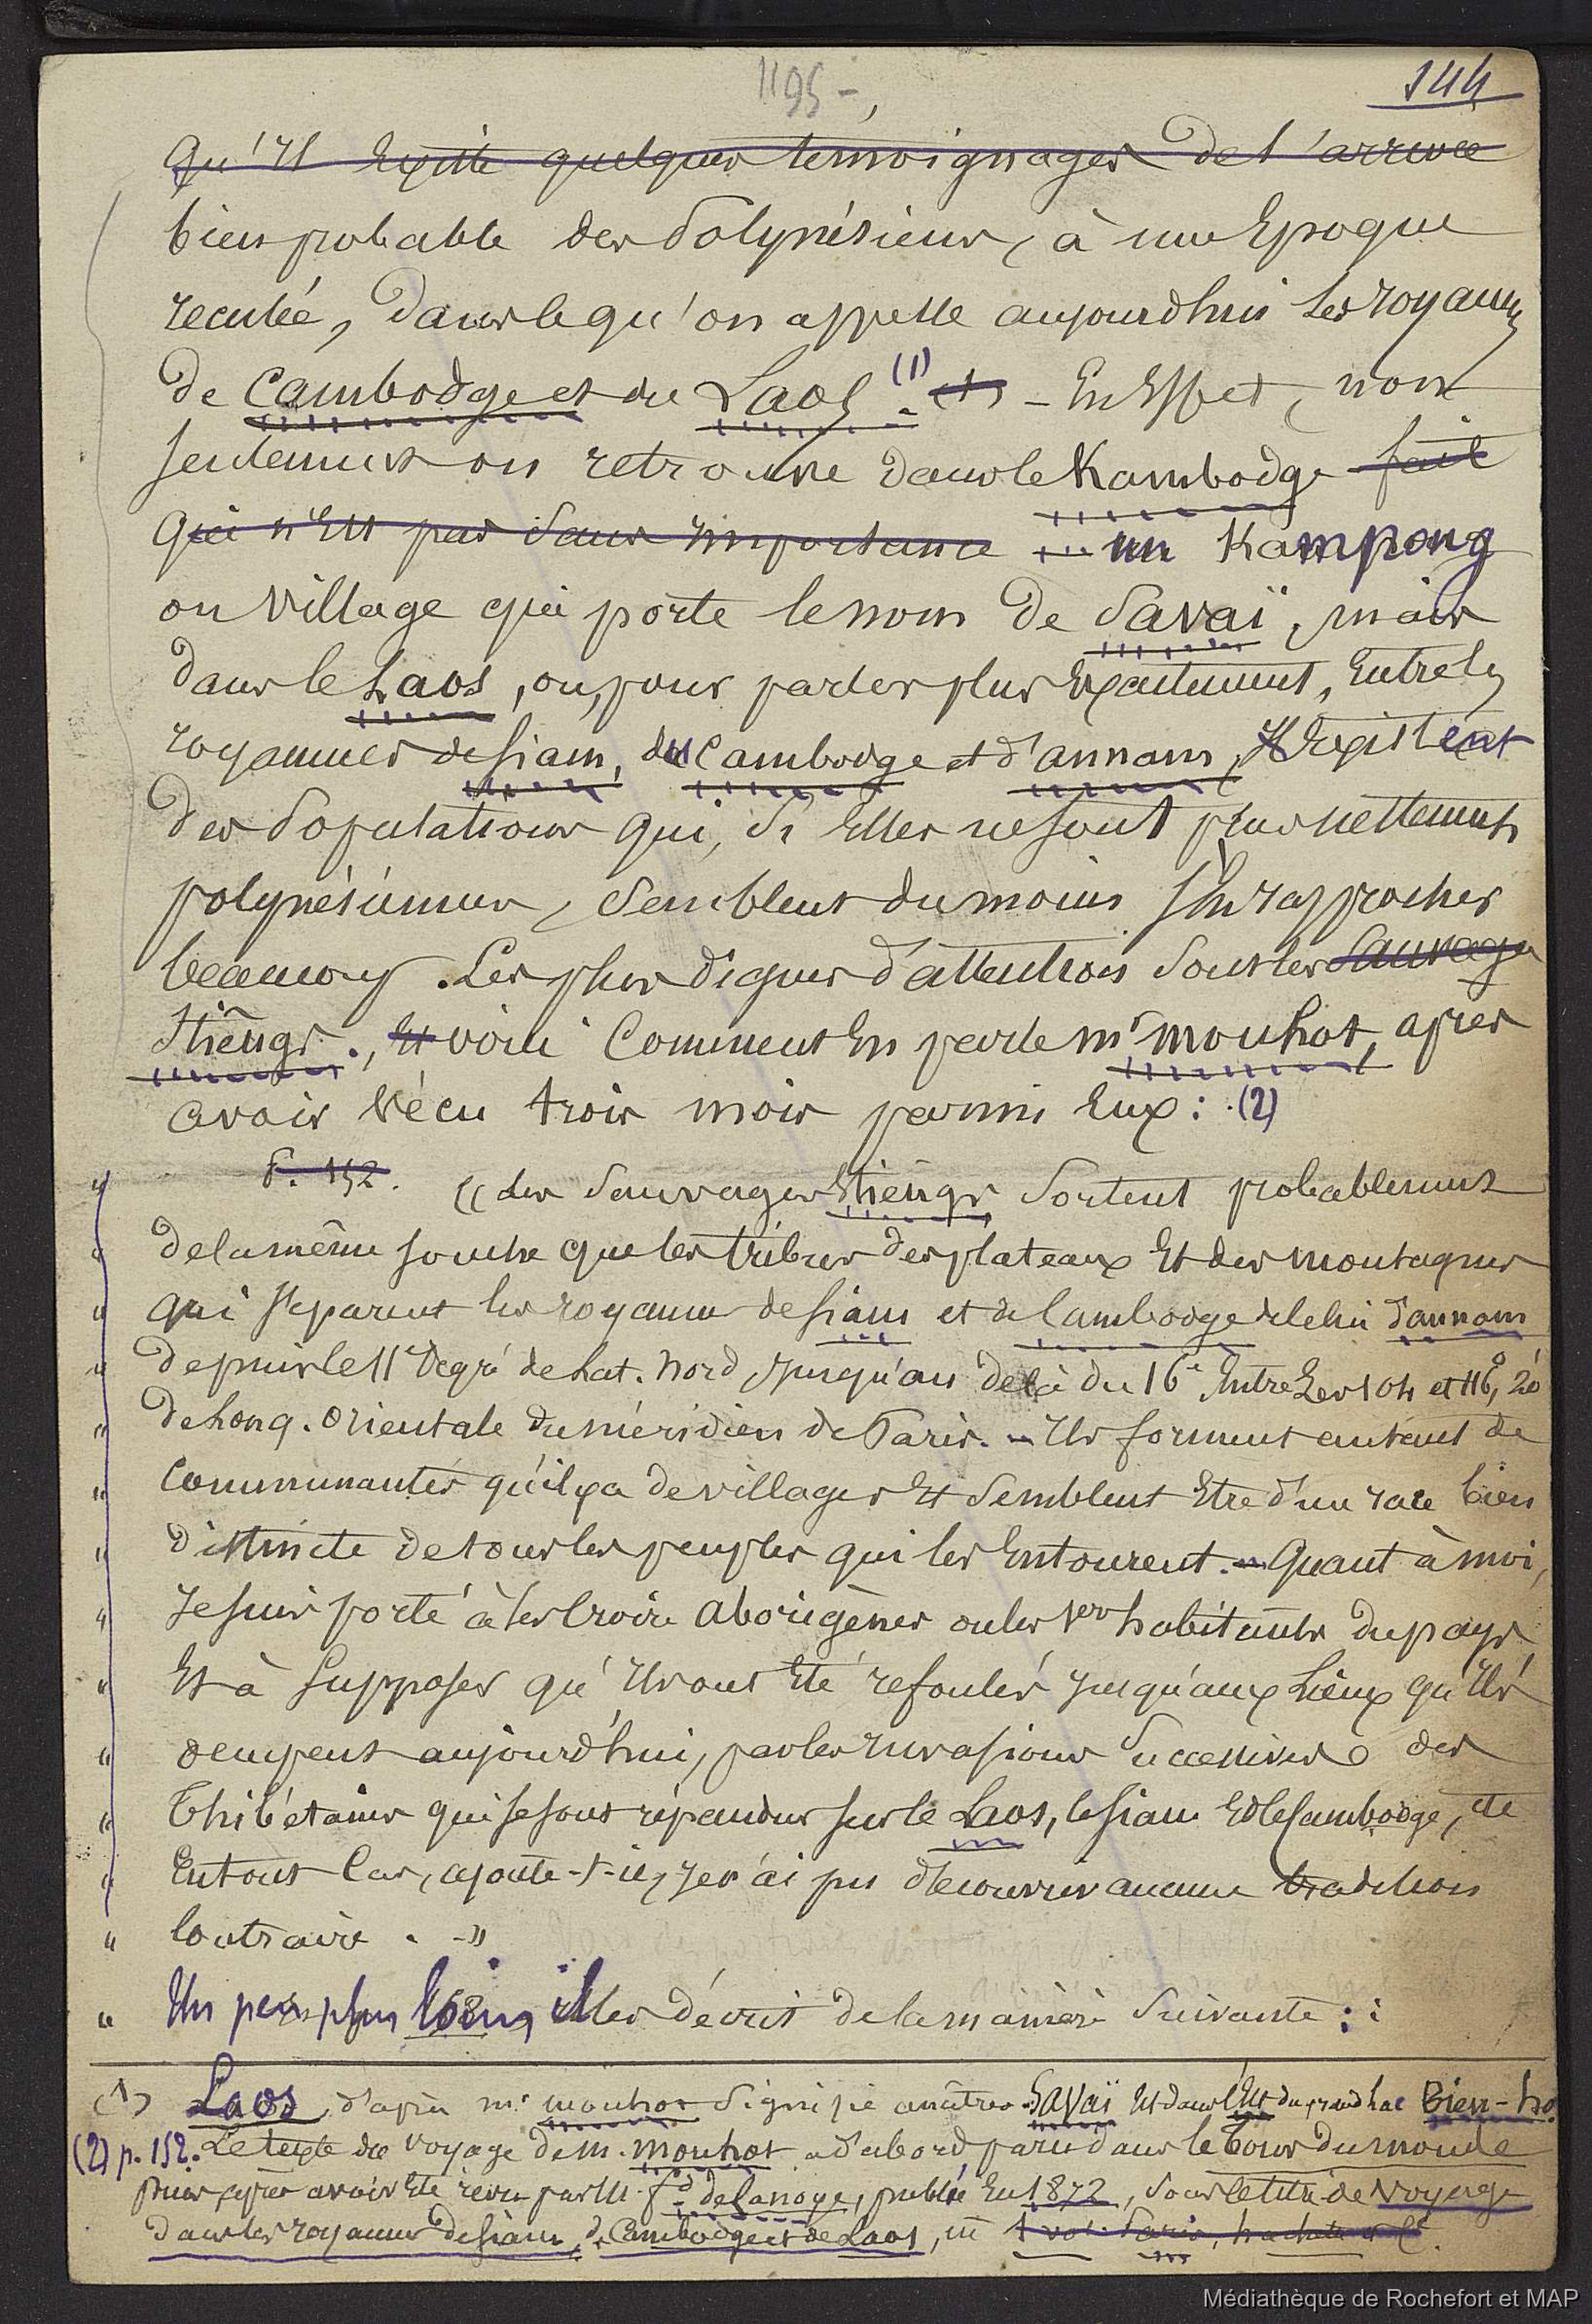 1195 -
144
qu'il existe quelques témoignages de l'arrivée
bien probable des Polynésiens, à une époque
reculée, dans ce qu'on appelle aujourdhui les royaumes
de Cambodge et du Laos (1). - En Effet, non
seulement on retrouve dans le Kambodge fait
qui n'est pas sans importance un Kampong
ou village qui porte le nom de Savaï, mais
dans le Laos, ou, pour parler plus exactement, entre les
royaumes de Siam, du Cambodge et d'annam, il existent
des populations qui, si Elles ne sont plus nettement
polynésiennes, semblent du moins s'en rapprocher
beaucoup. Les plus dignes d'attention sont les sauvages
Stiêngs., Et voici comment en parle mr mouhot, après
avoir vécu trois mois parmi Eux : (2)
P. 152. « Les sauvages Stiêngs sortent probablement
" de la même souche que les tribus des plateaux et des montagnes
" qui séparent les royaumes de Siam et de Cambodge de celui d'annam
" depuis le 11e degré de Lat. Nord jusqu'au delà du 16e entre les 104 et 116°, 20'
" de Long. orientale du méridien de Paris. - Ils forment autant de
" communautés qu'il y a de villages et semblent Etre d'une race bien
" distincte de tous les peuples qui les Entourent. - Quant à moi,
" je suis porté à les croire aborigènes ou les 1ers habitants du pays
" et à supposer qu'ils ont été refoulés jusqu'aux lieux qu'ils
" occupent aujourd'hui, par les invasions successives des
" Thibétains qui se sont répandus sur le Laos, le Siam et le Cambodge, etc
" En tous cas, ajoute-t-il, je n'ai pu découvrir aucune tradition
" contraire. - »
" Un peu plus loin, il les décrit de la manière suivante :
(1) Laos, d'après mr mouhot signifie ancêtres. Savaï est dans l'Est du grand lac Bien-ho.
(2) p. 152. Le texte du voyage de M. mouhot a d'abord paru dans le Tour du monde
puis après avoir été revu par M. fd delanoye, publié en 1872, sous le titre de voyage
dans les royaumes de Siam, de Cambodge et de Laos, in 1 vol. Paris, hachette et Cie.
Médiathèque de Rochefort et MAP